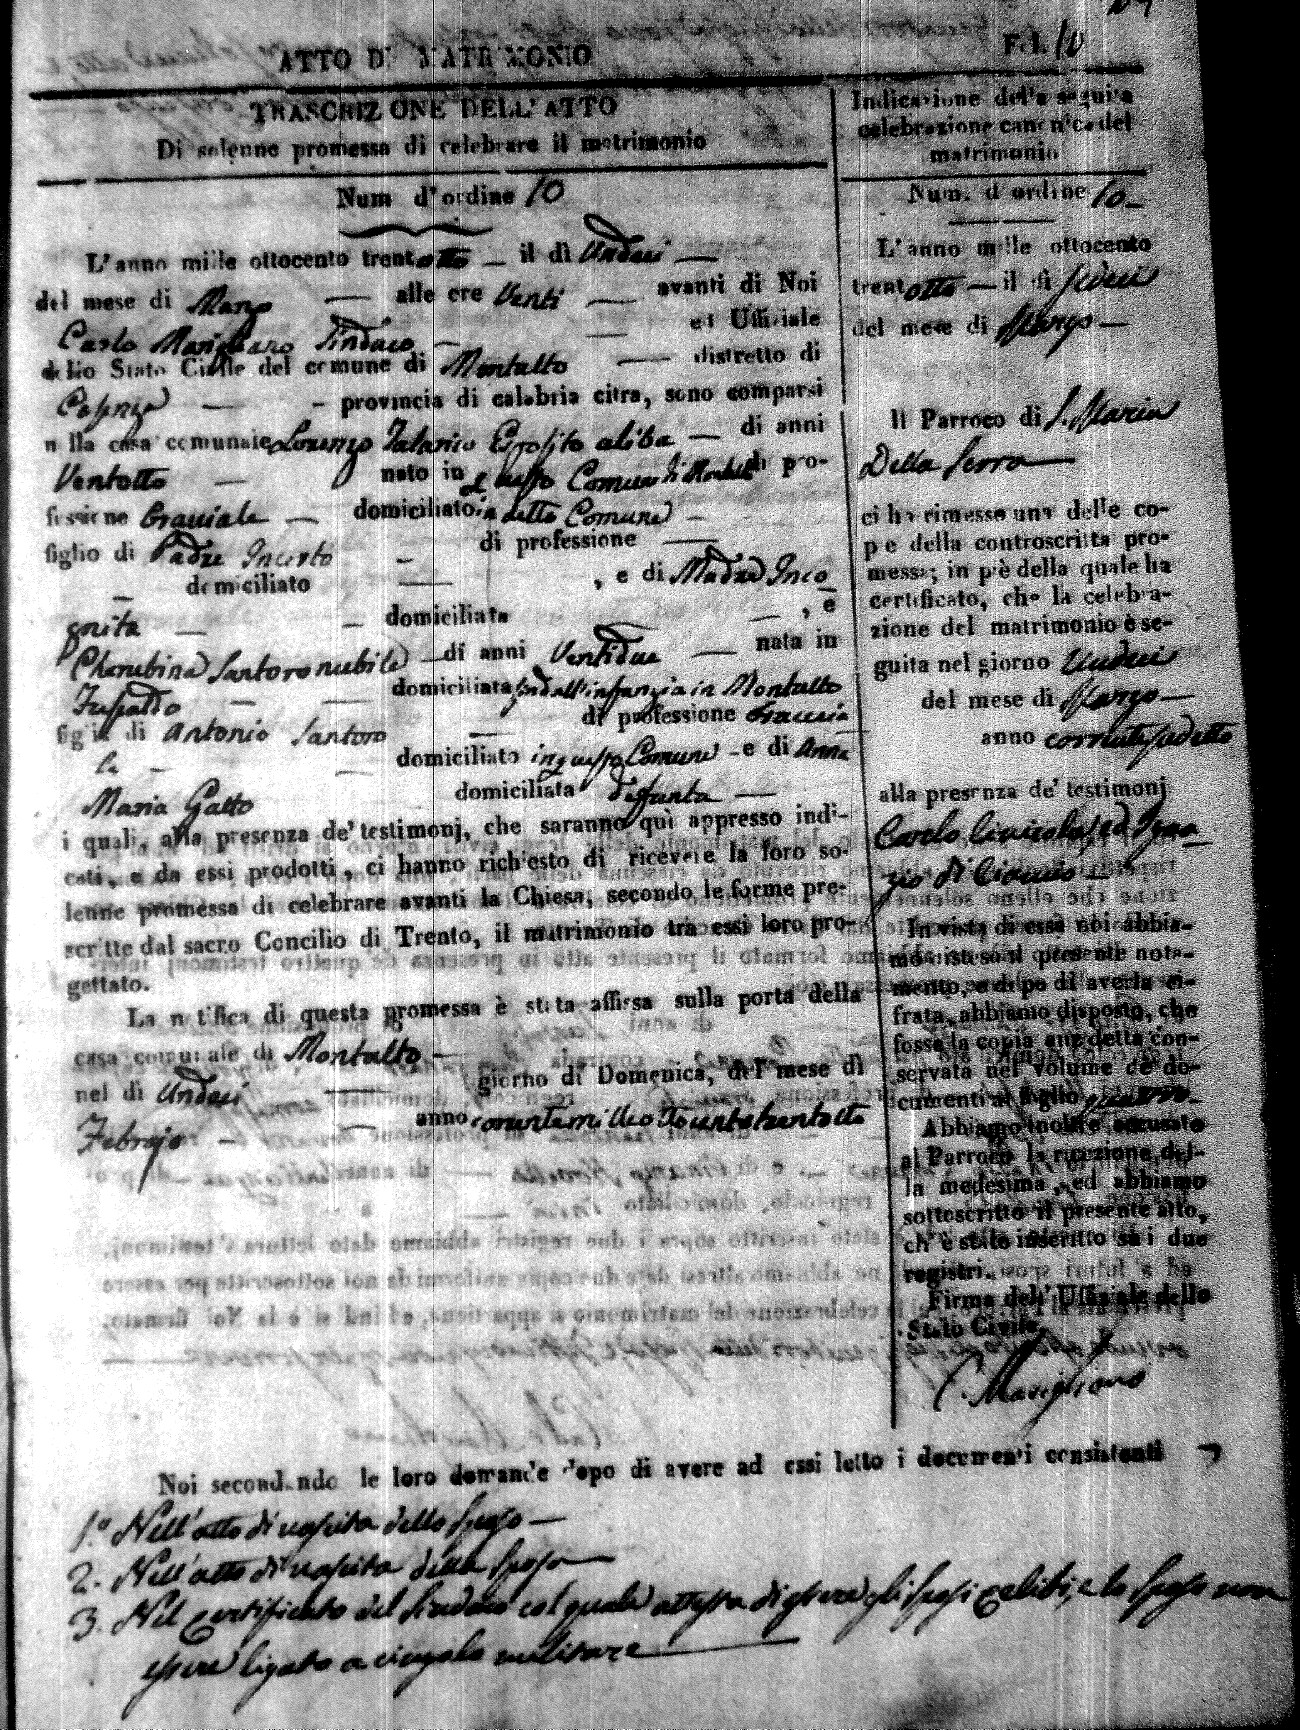 Fol. 10
ATTO DI MATRIMONIO
TRASCRIZIONE DELL'ATTO
Di solenne promessa di celebrare il matrimonio
Num d'ordine 10
L'anno mille ottocento trentotto — il dì Undeci —
del mese di Marzo — alle ore Venti — avanti di Noi
Carlo Marigliano Sindaco — ed Uffiziale
dello Stato Civile del comune di Montalto — distretto di
Cosenza — provincia di calabria citra, sono comparsi
nella casa comunale Lorenzo Talarico Esposito — di anni
Ventotto — nato in questo Comune di di pro-
fessione bracciale — domiciliato in detto Comune —
figlio di Padre Incerto — di professione —
— domiciliato — , e di Madre Inco
gnita — domiciliata — , e
Cherubina Santoro nubile — di anni Ventidue — nata in
— domiciliata sin dall'infanzia in Montalto
figlia di Antonio Santoro — di professione braccia
le — domiciliato in questo Comune — e di Anna
Maria Gatto domiciliata defunta —
i quali, alla presenza de' testimonj, che saranno quì appresso indi-
cati, e da essi prodotti, ci hanno richiesto di ricevere la loro so-
lenne promessa di celebrare avanti la Chiesa, secondo le forme pre-
scritte dal sacro Concilio di Trento, il matrimonio tra essi loro pro-
gettato.
La notifica di questa promessa è stata affissa sulla porta della
casa comunale di Montalto —
nel dì Undeci — giorno di Domenica, del mese di
Febrajo — anno corrente milleottocentotrentotto
Indicazione della seguita
celebrazione canonica del
matrimonio
Num. d'ordine 10 —
L'anno mille ottocento
trentotto — il dì
del mese di Marzo —
Il Parroco di S. Maria
Della Serra —
ci ha rimesso una delle co-
pie della controscritta pro-
messa; in piè della quale ha
certificato, che la celebra-
zione del matrimonio è se-
guita nel giorno Undeci
del mese di Marzo —
anno corrente sudetto
alla presenza de' testimonj
Carlo ed Igna-
zio Di Ciancio
In vista di essa noi abbia-
mo disteso il presente nota-
mento, e dopo di averla ci-
frata, abbiamo disposto, che
fosse la copia anzidetta con-
servata nel volume de' do-
cumenti al foglio
Abbiamo inoltre accusato
al Parroco la ricezione del-
la medesima, ed abbiamo
sottoscritto il presente atto,
ch'è stato inscritto su i due
registri.
Firma dell'Uffiziale dello
Stato Civile.
C. Marigliano
Noi secondando le loro domande dopo di avere ad essi letto i documenti consistenti
1.º Nell'atto di nascita dello sposo —
2. Nell'atto di nascita della sposa —
3. Nel certificato del Sindaco col quale attesta di essere gli sposi celibi, e lo sposo non
essere ligato a cingolo militare —